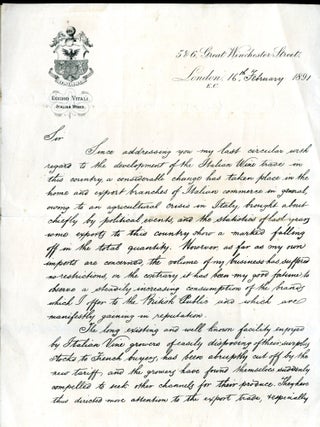 5 & 6, Great Winchester Street,
London, 16th February 1891
E.C.
EGIDIO VITALI
ITALIAN WINES
Sir
Since addressing you my last circular with
regard to the development of the Italian Wine trade in
this country, a considerable change has taken place in the
home and export branches of Italian commerce in general,
owing to an agricultural crisis in Italy brought about
chiefly by political events and the statistics of last years
wine exports to this country show a marked falling
off in the total quantity. However as far as my own
imports are concerned, the volume of my business has suffered
no restrictions, on the contrary it has been my good fortune to
observe a steadily increasing consumption of the brands
which I offer to the British Public and which are
manifestly gaining in reputation.
The long existing and well known facility enjoyed
by Italian Vine growers of easily disposing of their surplus
stocks to French buyers, has been abruptly cut off by the
new tariff, and the growers have found themselves suddenly
compelled to seek other channels for their produce. They have
thus directed more attention to the export trade, especially